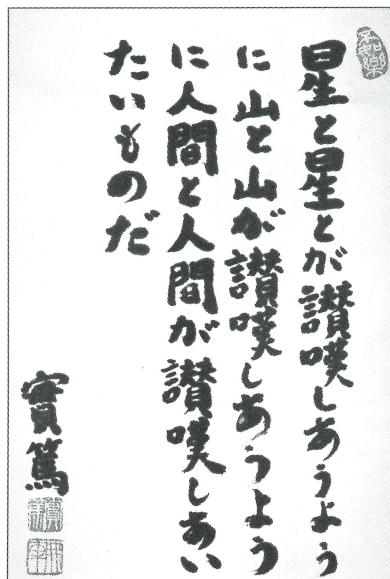 星と星とが讃嘆しあうよう
に山と山が讃嘆しあうよう
に人間と人間が讃嘆しあい
たいものだ
實篤